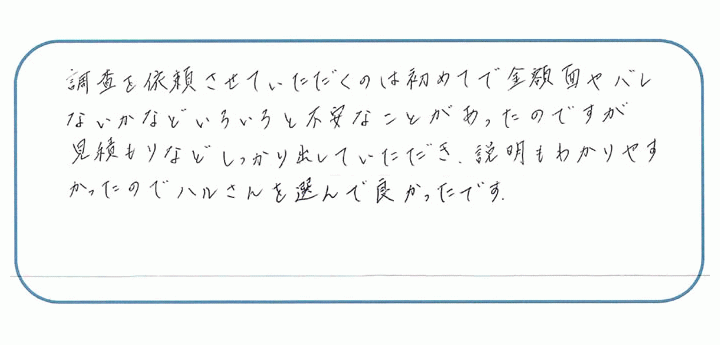 調査を依頼させていただくのは初めてで金額面やバレ
ないかなどいろいろと不安なことがあったのですが
見積もりなどしっかり出していただき、説明もわかりやす
かったのでハルさんを選んで良かったです。